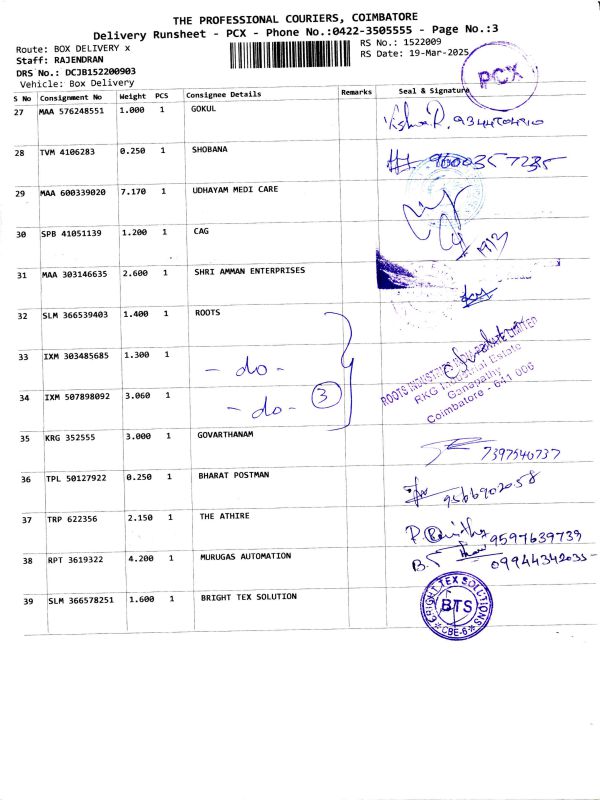 THE PROFESSIONAL COURIERS, COIMBATORE
Delivery Runsheet - PCX - Phone No.:0422-3505555 - Page No.:3
Route: BOX DELIVERY x
RS No.: 1522009
Staff: RAJENDRAN
RS Date: 19-Mar-2025
DRS No.: DCJB152200903
Vehicle: Box Delivery
PCX
S No Consignment No Weight PCS Consignee Details Remarks Seal & Signature
27 MAA 576248551 1.000 1 GOKUL
28 TVM 4106283 0.250 1 SHOBANA 9600357235
29 MAA 600339020 7.170 1 UDHAYAM MEDI CARE
30 SPB 41051139 1.200 1 CAG
31 MAA 303146635 2.600 1 SHRI AMMAN ENTERPRISES
32 SLM 366539403 1.400 1 ROOTS
33 IXM 303485685 1.300 1 - do -
34 IXM 507898092 3.060 1 - do - 3
ROOTS INDUSTRIES LIMITED
RKG Industrial Estate
Ganapathy
Coimbatore - 641 006
35 KRG 352555 3.000 1 GOVARTHANAM 7397546737
36 TPL 50127922 0.250 1 BHARAT POSTMAN 9566902058
37 TRP 622356 2.150 1 THE ATHIRE 9597639739
38 RPT 3619322 4.200 1 MURUGAS AUTOMATION 09944342035-
39 SLM 366578251 1.600 1 BRIGHT TEX SOLUTION
BRIGHT TEX SOLUTIONS
BTS
* CBE-6 *